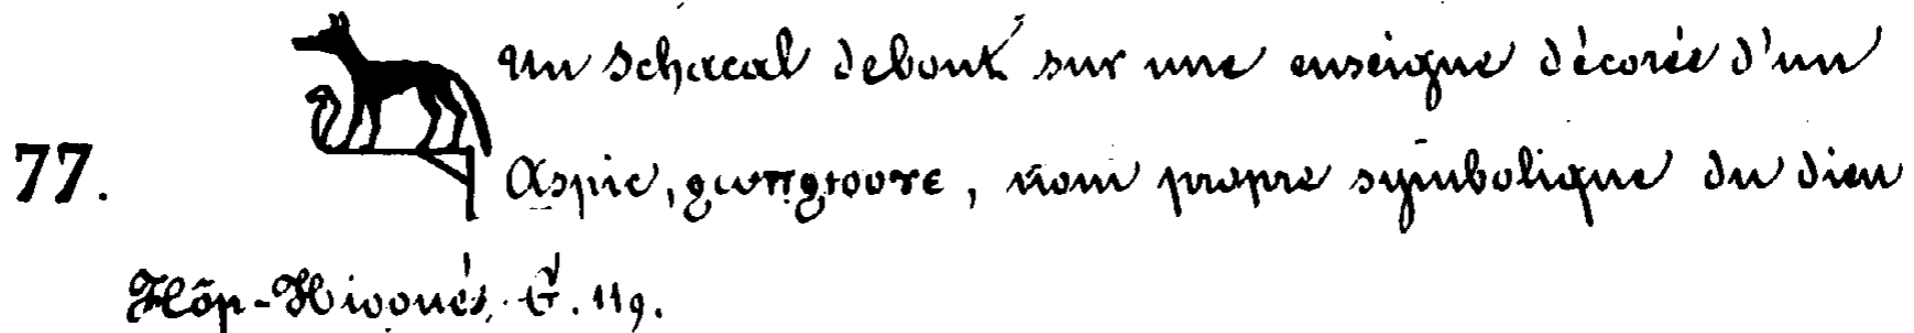 Un Schacal debout sur une enseigne décorée d'un
77. Aspic, ϩωⲡϩⲓⲟⲟⲩⲉ, nom propre symbolique du dieu
Hôp-Hiooués. G. 119.